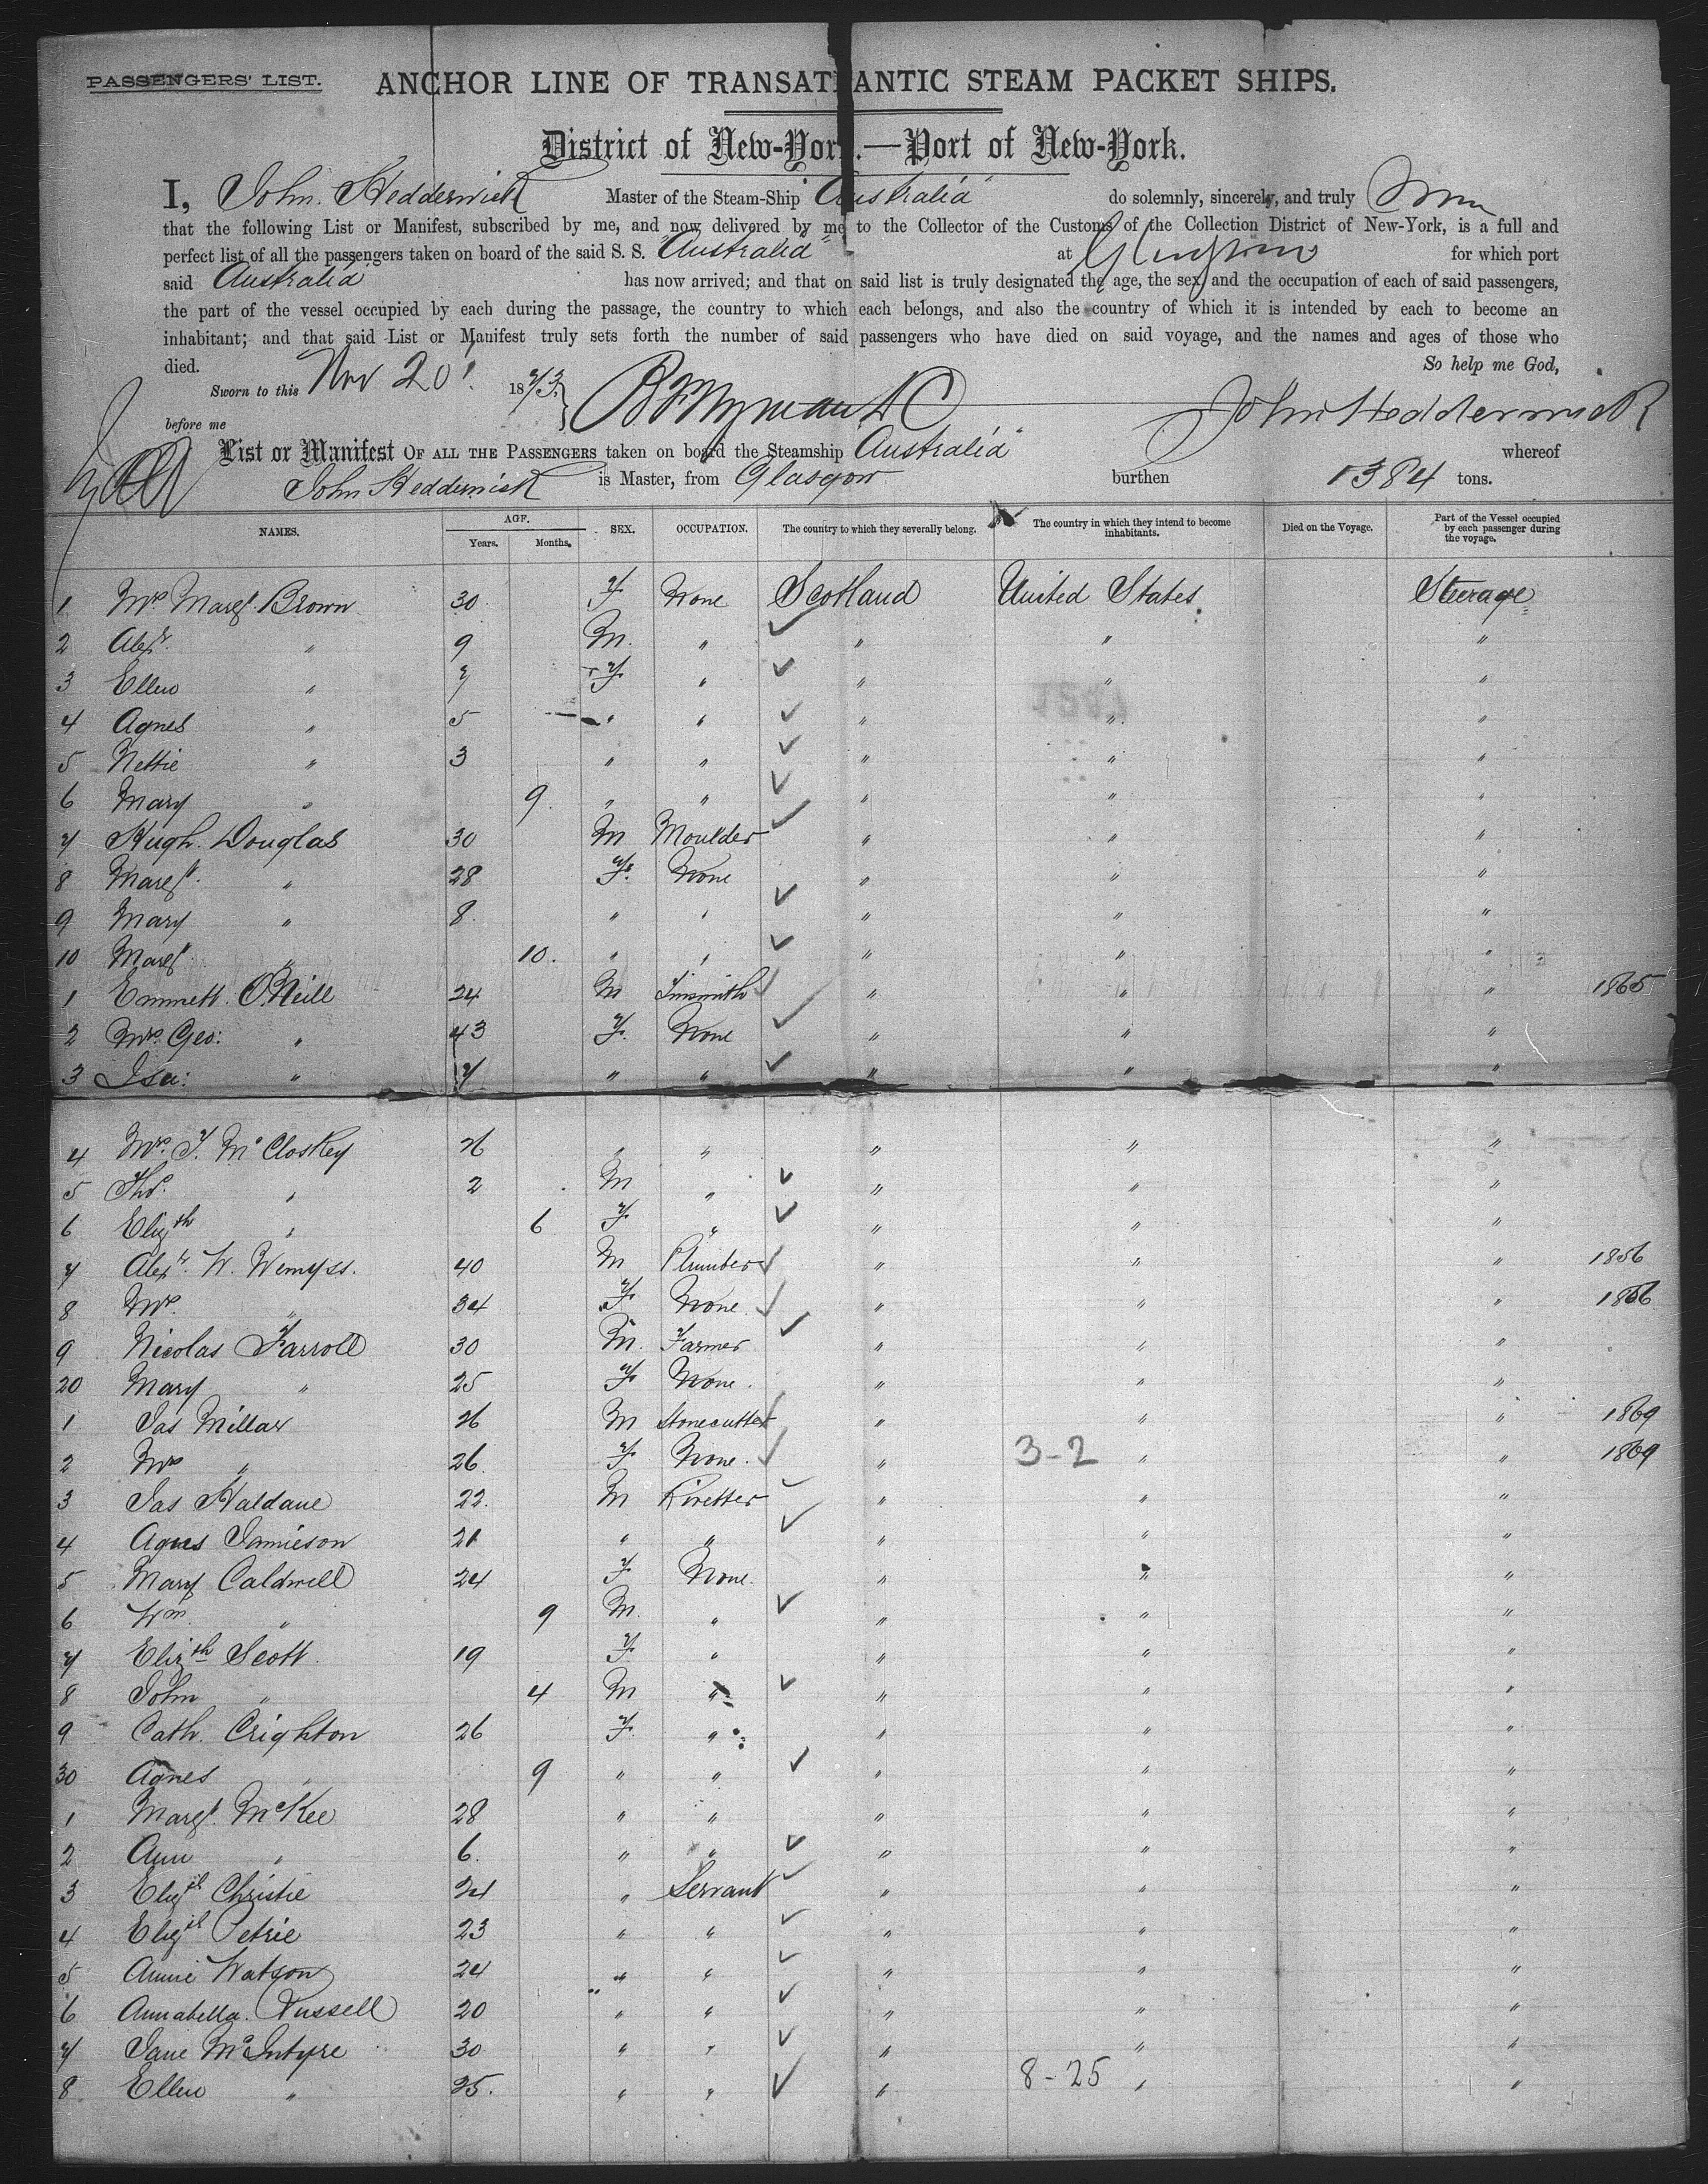 PASSENGERS' LIST. ANCHOR LINE OF TRANSATLANTIC STEAM PACKET SHIPS.
District of New-York.—Port of New-York.
I, John Hedderwick Master of the Steam-Ship "Australia" do solemnly, sincerely, and truly
that the following List or Manifest, subscribed by me, and now delivered by me to the Collector of the Customs of the Collection District of New-York, is a full and
perfect list of all the passengers taken on board of the said S. S. "Australia" at Glasgow for which port
said Australia has now arrived; and that on said list is truly designated the age, the sex, and the occupation of each of said passengers,
the part of the vessel occupied by each during the passage, the country to which each belongs, and also the country of which it is intended by each to become an
inhabitant; and that said List or Manifest truly sets forth the number of said passengers who have died on said voyage, and the names and ages of those who
died. So help me God,
Sworn to this Nov 20 1873
before me John Hedderwick
List or Manifest OF ALL THE PASSENGERS taken on board the Steamship "Australia" whereof
John Hedderwick is Master, from Glasgow burthen 1384 tons.
NAMES. AGE. Years. Months. SEX. OCCUPATION. The country to which they severally belong. The country in which they intend to become inhabitants. Died on the Voyage. Part of the Vessel occupied by each passenger during the voyage.
1 Mrs Margt Brown 30 F None Scotland United States Steerage
2 Alexr. " 9 M. " " " "
3 Ellen " 7 F " " " "
4 Agnes " 5 " " " " "
5 Nettie " 3 " " " " "
6 Mary " 9. " " " " "
7 Hugh Douglas 30 M Moulder " " "
8 Margt. " 28 F. None " " "
9 Mary " 8. " " " " "
10 Margt. " 10. " " " " "
1 Emmett O'Neill 24 M Tinsmith " " " 1865
2 Mrs. Geo: " 43 F. None " " "
3 Isa: " 7 " " " " "
4 Mrs. T. McCloskey 26 " " " " "
5 Thos. " 2 M " " " "
6 Elizth " 6 F " " " "
7 Alexr. W. Wemyss. 40 M Plumber " " " 1856
8 Mrs. " 34 F None " " " 1856
9 Nicolas Farroll 30 M. Farmer " " "
20 Mary " 25 F None. " " "
1 Jas Millar 26 M Stonecutter " " " 1869
2 Mrs " 26. F None. " 3-2 " " 1869
3 Jas Haldane 22. M Rivetter " " "
4 Agnes Jamieson 21 " " " " "
5 Mary Caldwell 24 F None. " " "
6 Wm. " 9 M. " " " "
7 Elizth Scott. 19 F " " " "
8 John " 4 M " " " "
9 Cath. Crighton 26 F. " " " "
30 Agnes " 9 " " " " "
1 Margt. McKee 28 " " " " "
2 Ann " 6. " " " " "
3 Elizth Christie 24 " Servant " " "
4 Elizth Petrie 23 " " " " "
5 Annie Watson 24 " " " " "
6 Annabella Russell 20 " " " " "
7 Jane McIntyre 30 " " " " "
8 Ellen " 25. " " " 8-25 " "